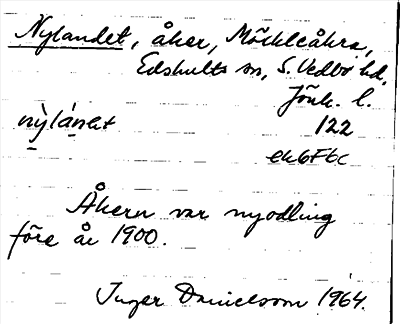 Nylandet, åker, Mörkleåkra,
Edshults sn, S. Vedbo hd,
Jönk. l.
nỳlánet
122
ek6F6c
Åkern var nyodling
före år 1900.
Inger Danielsson 1964.